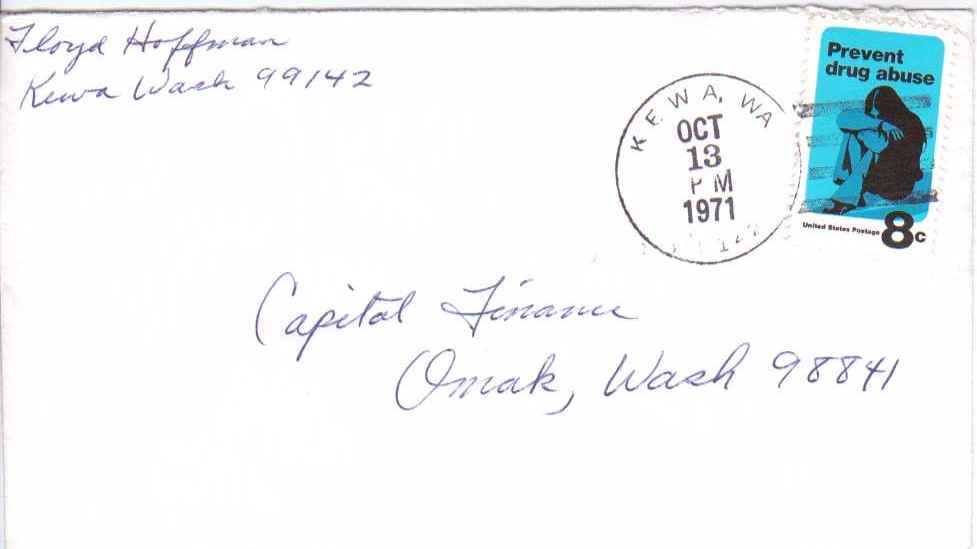 Floyd Hoffman
Kewa Wash 99142
KEWA, WA
OCT
13
PM
1971
Prevent
drug abuse
United States Postage 8c
Capital Finance
Omak, Wash 98841